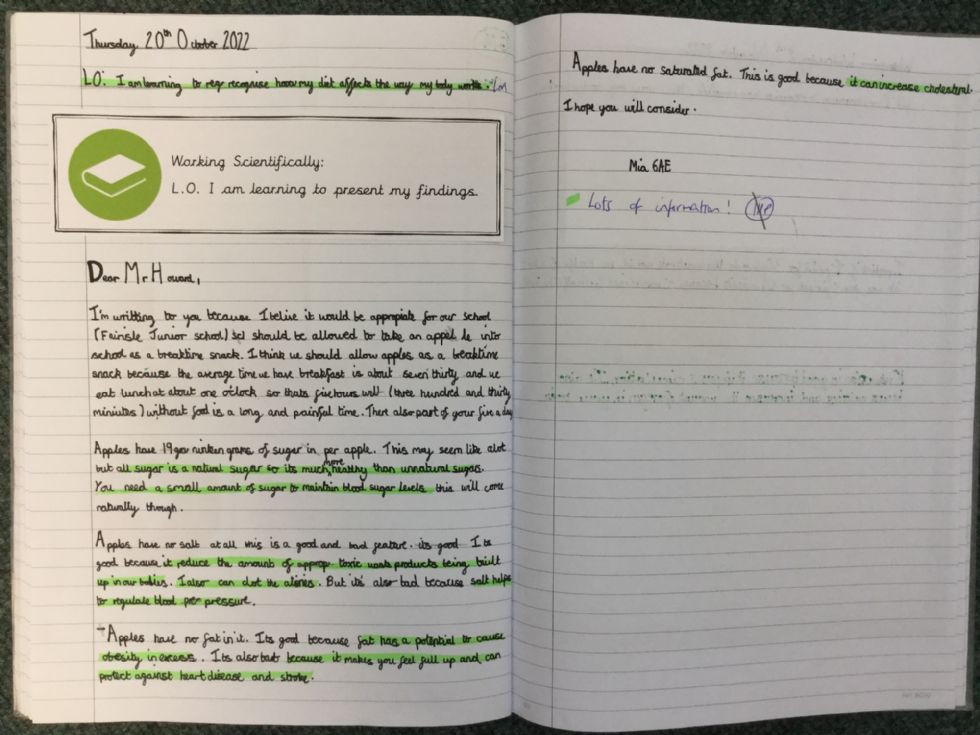 Thursday 20th October 2022
LO: I am learning to regr recognise how my diet affects the way my body works.
Working Scientifically:
L.O. I am learning to present my findings.
Dear Mr Howard,
I'm writting to you because I belive it would be appropiate for our school
Junior school) scl should be allowed to take an appel le into
school as a breaktime snack. I think we should allow apples as a breaktime
snack because the average time we have breakfast is about seven thirty and we
eat lunch at about one o'clock so thats five hours (three hundred and thirty
miniutes) without food is a long and painful time. There also part of your five a day
Apples have 19 grams of sugar in per apple. This may seem like alot
but all sugar is a natural sugar so its much more healthy than unnatural sugars.
You need a small amount of sugar to maintain blood sugar levels this will come
naturally though.
Apples have no salt at all this is a good and bad feature. its good Its
good because it reduce the amount of approp toxic waste products being built
up in our bodies. I also can clot the But it's also bad because salt helps
to regulate blood per pressure.
Apples have no fat in it. Its good because fat has a potential to cause
obesity in excess. Its also bad because it makes you feel full up and can
protect against heart disease and stroke.
Apples have no saturated fat. This is good because it can increase cholesteral.
I hope you will consider.
Mia 6AE
Lots of information!